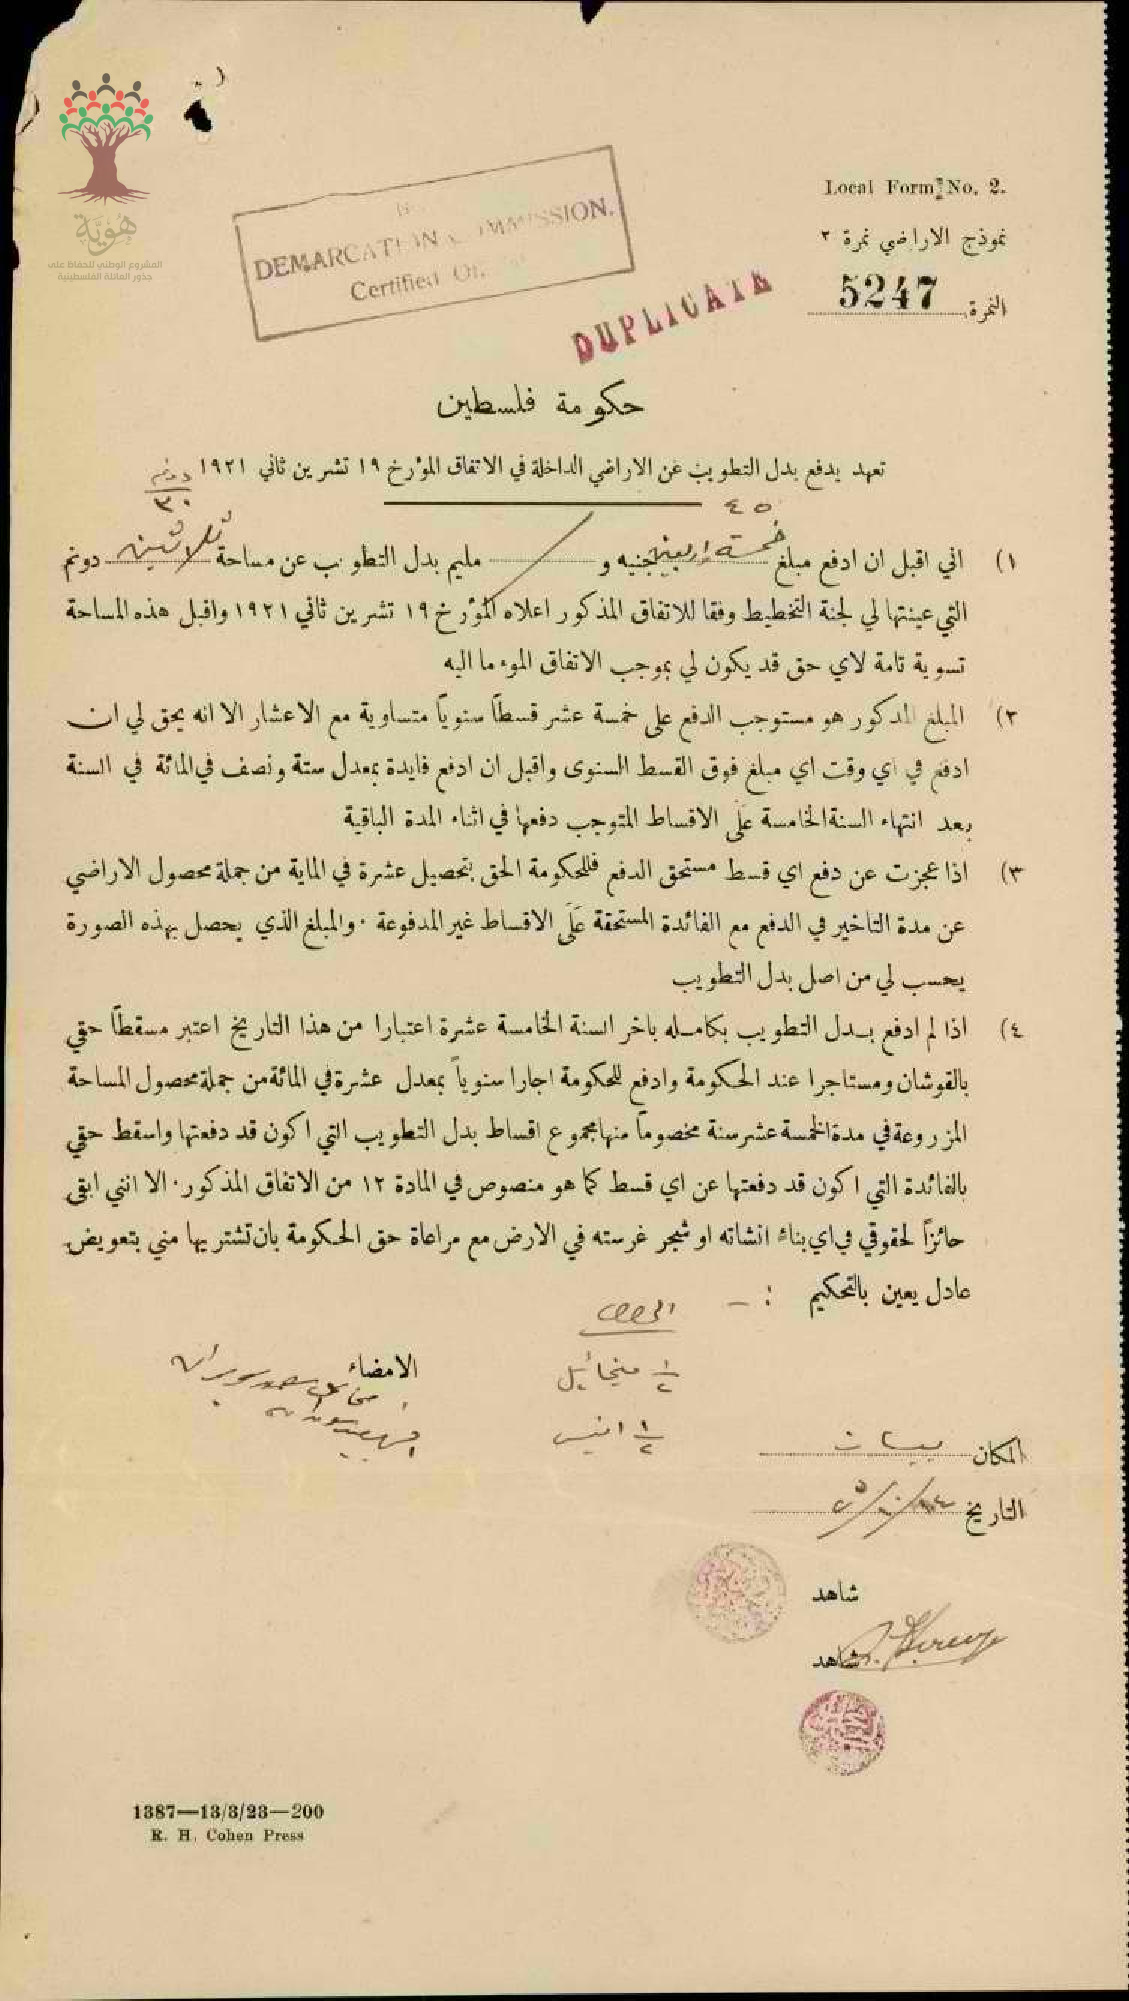 هُويَّة
المشروع الوطني للحفاظ على
جذور العائلة الفلسطينية
DEMARCATION COMMISSION.
Certified
DUPLICATE
Local Form No. 2.
نموذج الاراضي نمرة ٢
النمرة 5247
حكومة فلسطين
تعهد بدفع بدل التطويب عن الاراضي الداخلة في الاتفاق المؤرخ ١٩ تشرين ثاني ١٩٢١
دونم
٣٠
٤٥
١) اني اقبل ان ادفع مبلغ خمسة واربعين جنيه و مليم بدل التطويب عن مساحة ثلاثين دونم
التي عينتها لي لجنة التخطيط وفقا للاتفاق المذكور اعلاه المؤرخ ١٩ تشرين ثاني ١٩٢١ واقبل هذه المساحة
تسوية تامة لاي حق قد يكون لي بموجب الاتفاق الموء ما اليه
٢) المبلغ المذكور هو مستوجب الدفع على خمسة عشر قسطاً سنوياً متساوية مع الاعشار الا انه يحق لي ان
ادفع في اي وقت اي مبلغ فوق القسط السنوى واقبل ان ادفع فايدة بمعدل ستة ونصف في المائة في السنة
بعد انتهاء السنة الخامسة عَلَى الاقساط المتوجب دفعها في اثناء المدة الباقية
٣) اذا عجزت عن دفع اي قسط مستحق الدفع فللحكومة الحق بتحصيل عشرة في الماية من جملة محصول الاراضي
عن مدة التاخير في الدفع مع الفائدة المستحقة عَلَى الاقساط غير المدفوعة . والمبلغ الذي يحصل بهذه الصورة
يحسب لي من اصل بدل التطويب
٤) اذا لم ادفع بـدل التطويب بكامـله باخر السنة الخامسة عشرة اعتبارا من هذا التاريخ اعتبر مسقطاً حقي
بالقوشان ومستاجرا عند الحكومة وادفع للحكومة اجارا سنوياً بمعدل عشرة في المائة من جملة محصول المساحة
المزروعة في مدة الخمسة عشر سنة مخصوماً منها مجموع اقساط بدل التطويب التي اكون قد دفعتها واسقط حقي
بالفائدة التي اكون قد دفعتها عن اي قسط كما هو منصوص في المادة ١٢ من الاتفاق المذكور . الا انني ابقى
حائزاً لحقوقي في اي بناء انشاته او شجر غرسته في الارض مع مراعاة حق الحكومة بان تشتريها مني بتعويض
عادل يعين بالتحكيم : —
الحصص
١/٢ ميخائيل
١/٢ انيس
الامضاء
المكان بيسان
التاريخ
شاهد
شاهد
1387—13/3/23—200
R. H. Cohen Press